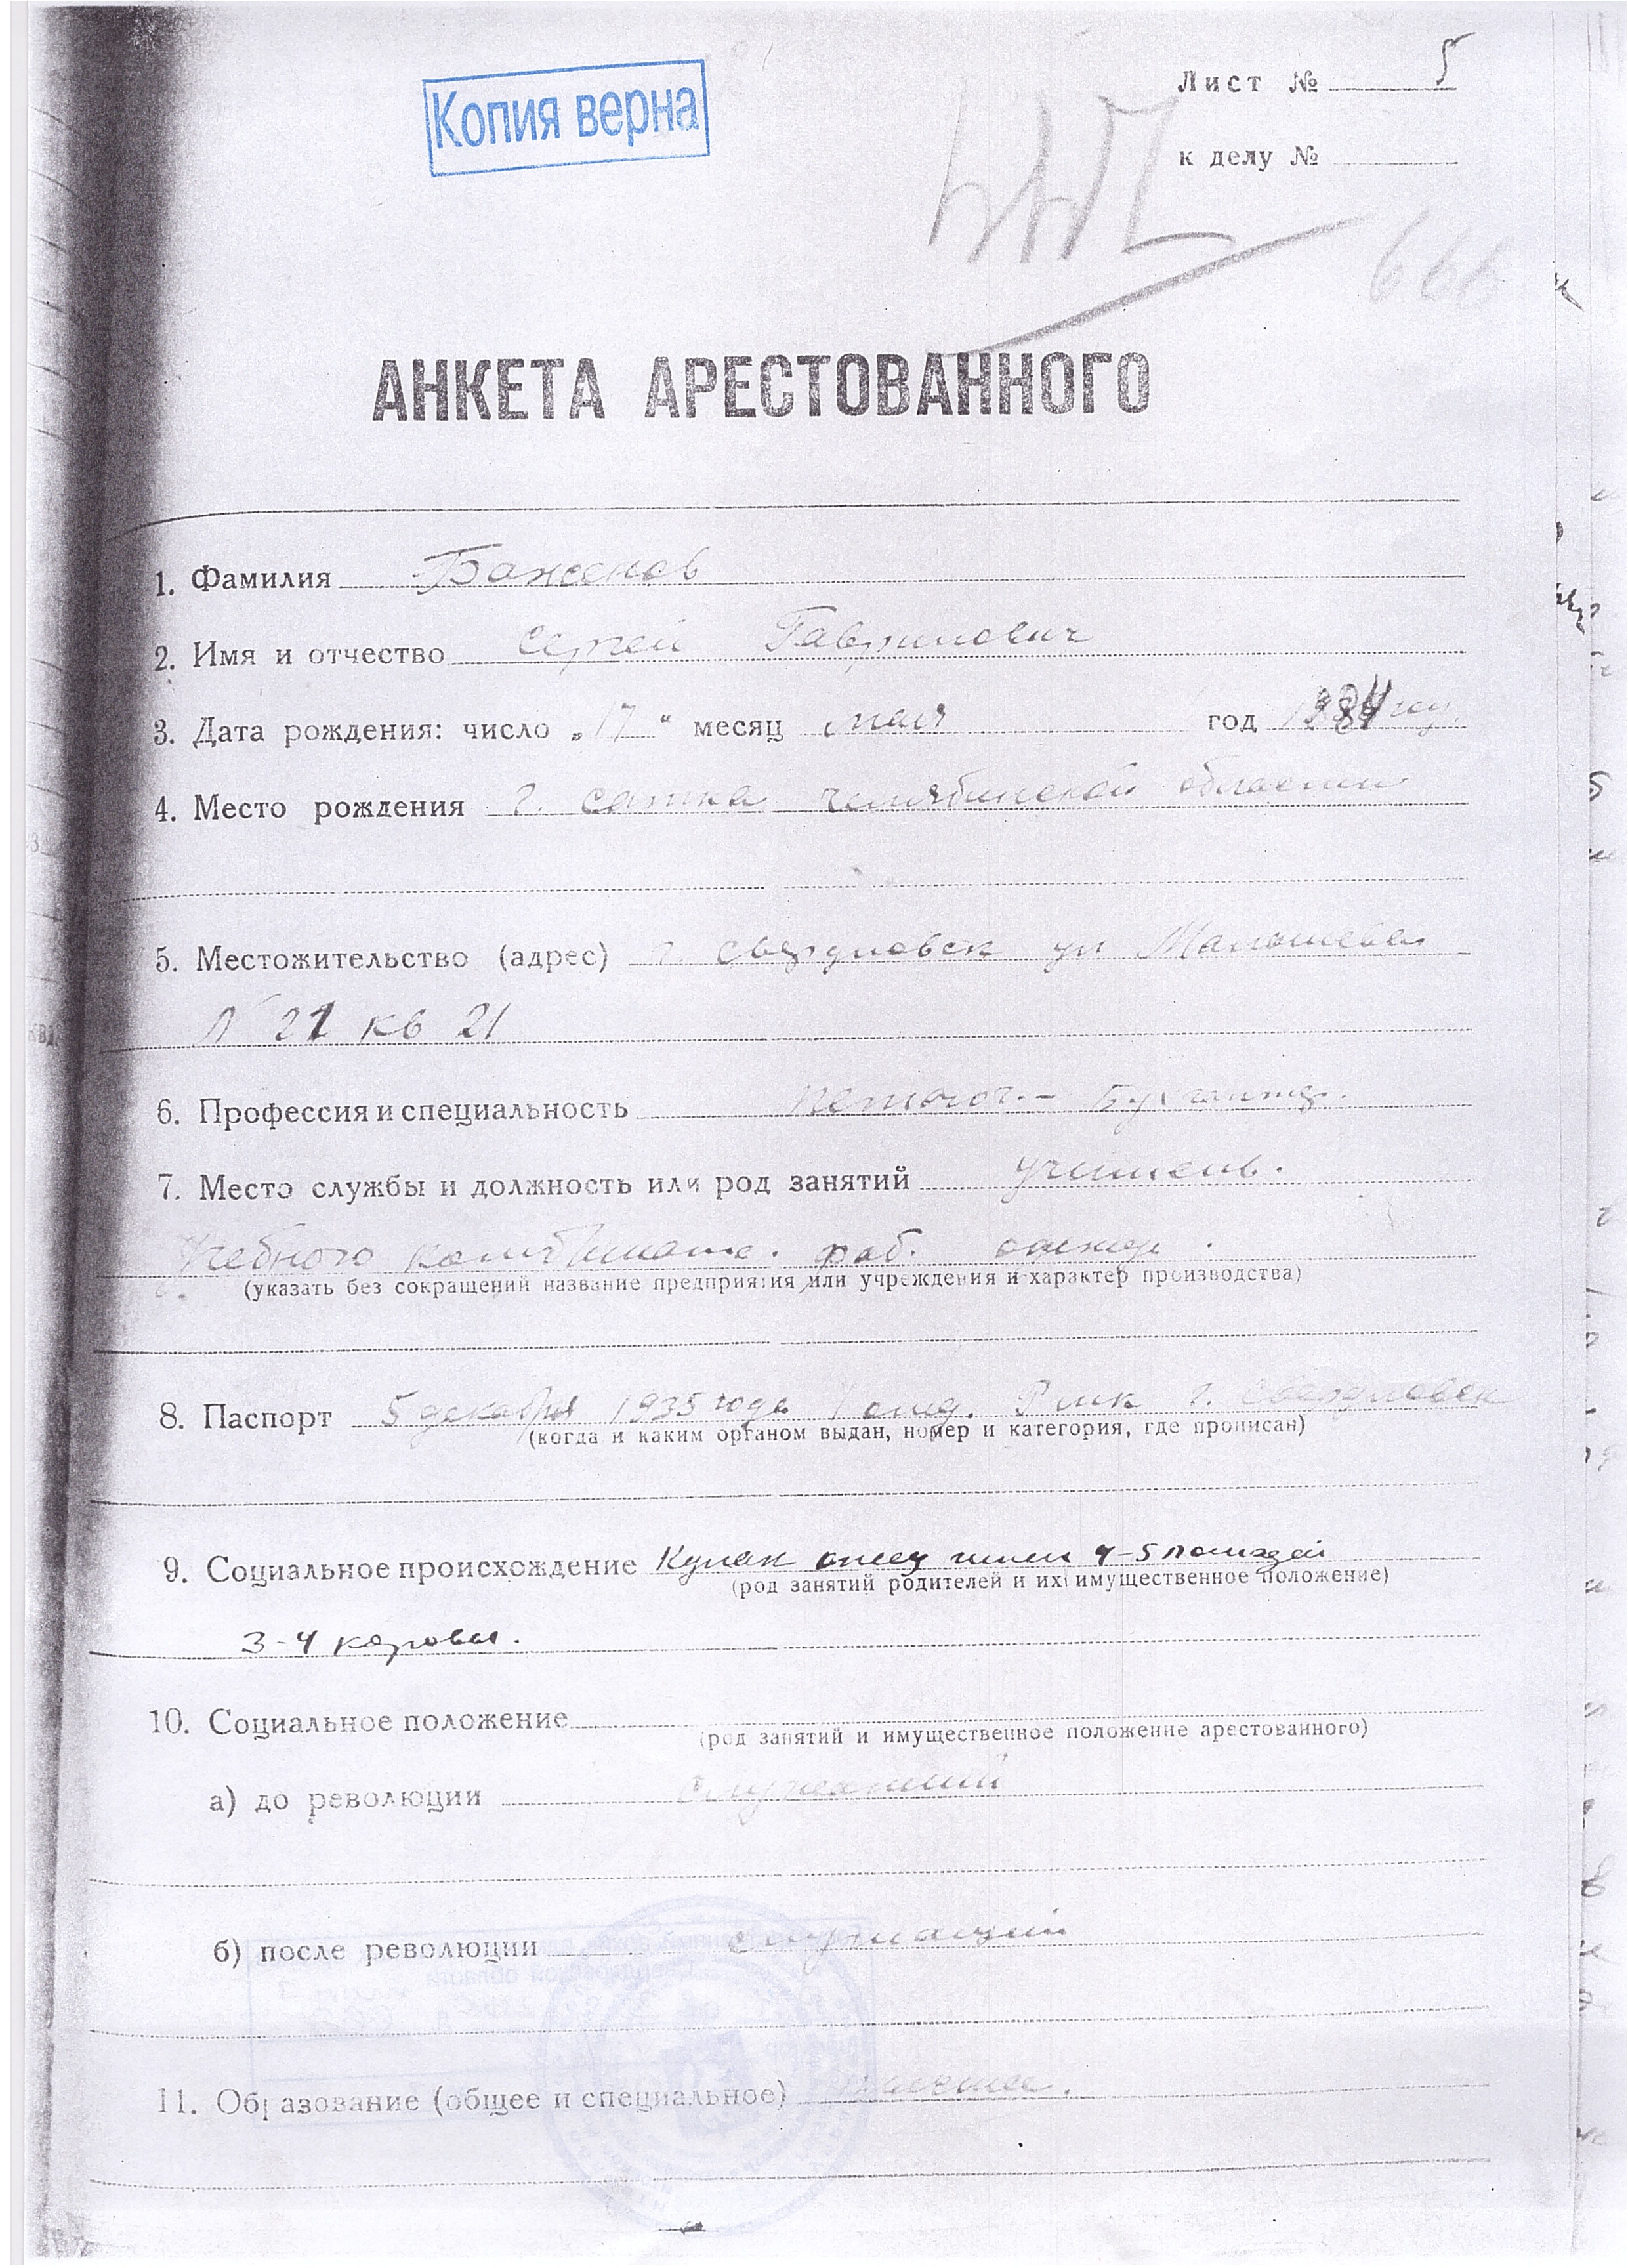 Копия верна
Лист № 5
к делу №
АНКЕТА АРЕСТОВАННОГО
1. Фамилия Баженов
2. Имя и отчество Сергей Гаврилович
3. Дата рождения: число „17“ месяц мая год
4. Место рождения г. Сатка Челябинской области
5. Местожительство (адрес) г. Свердловск ул Малышева
N 21 кв 21
6. Профессия и специальность Бухгалтер.
7. Место службы и должность или род занятий учитель.
Учебного комбината. раб.
(указать без сокращений название предприятия или учреждения и характер производства)
8. Паспорт 5 декабря 1935 года г. Свердловск
(когда и каким органом выдан, номер и категория, где прописан)
9. Социальное происхождение Кулак отец имел 4-5 лошадей
(род занятий родителей и их имущественное положение)
3-4 коровы.
10. Социальное положение
(род занятий и имущественное положение арестованного)
а) до революции служащий
б) после революции служащий
11. Образование (общее и специальное)